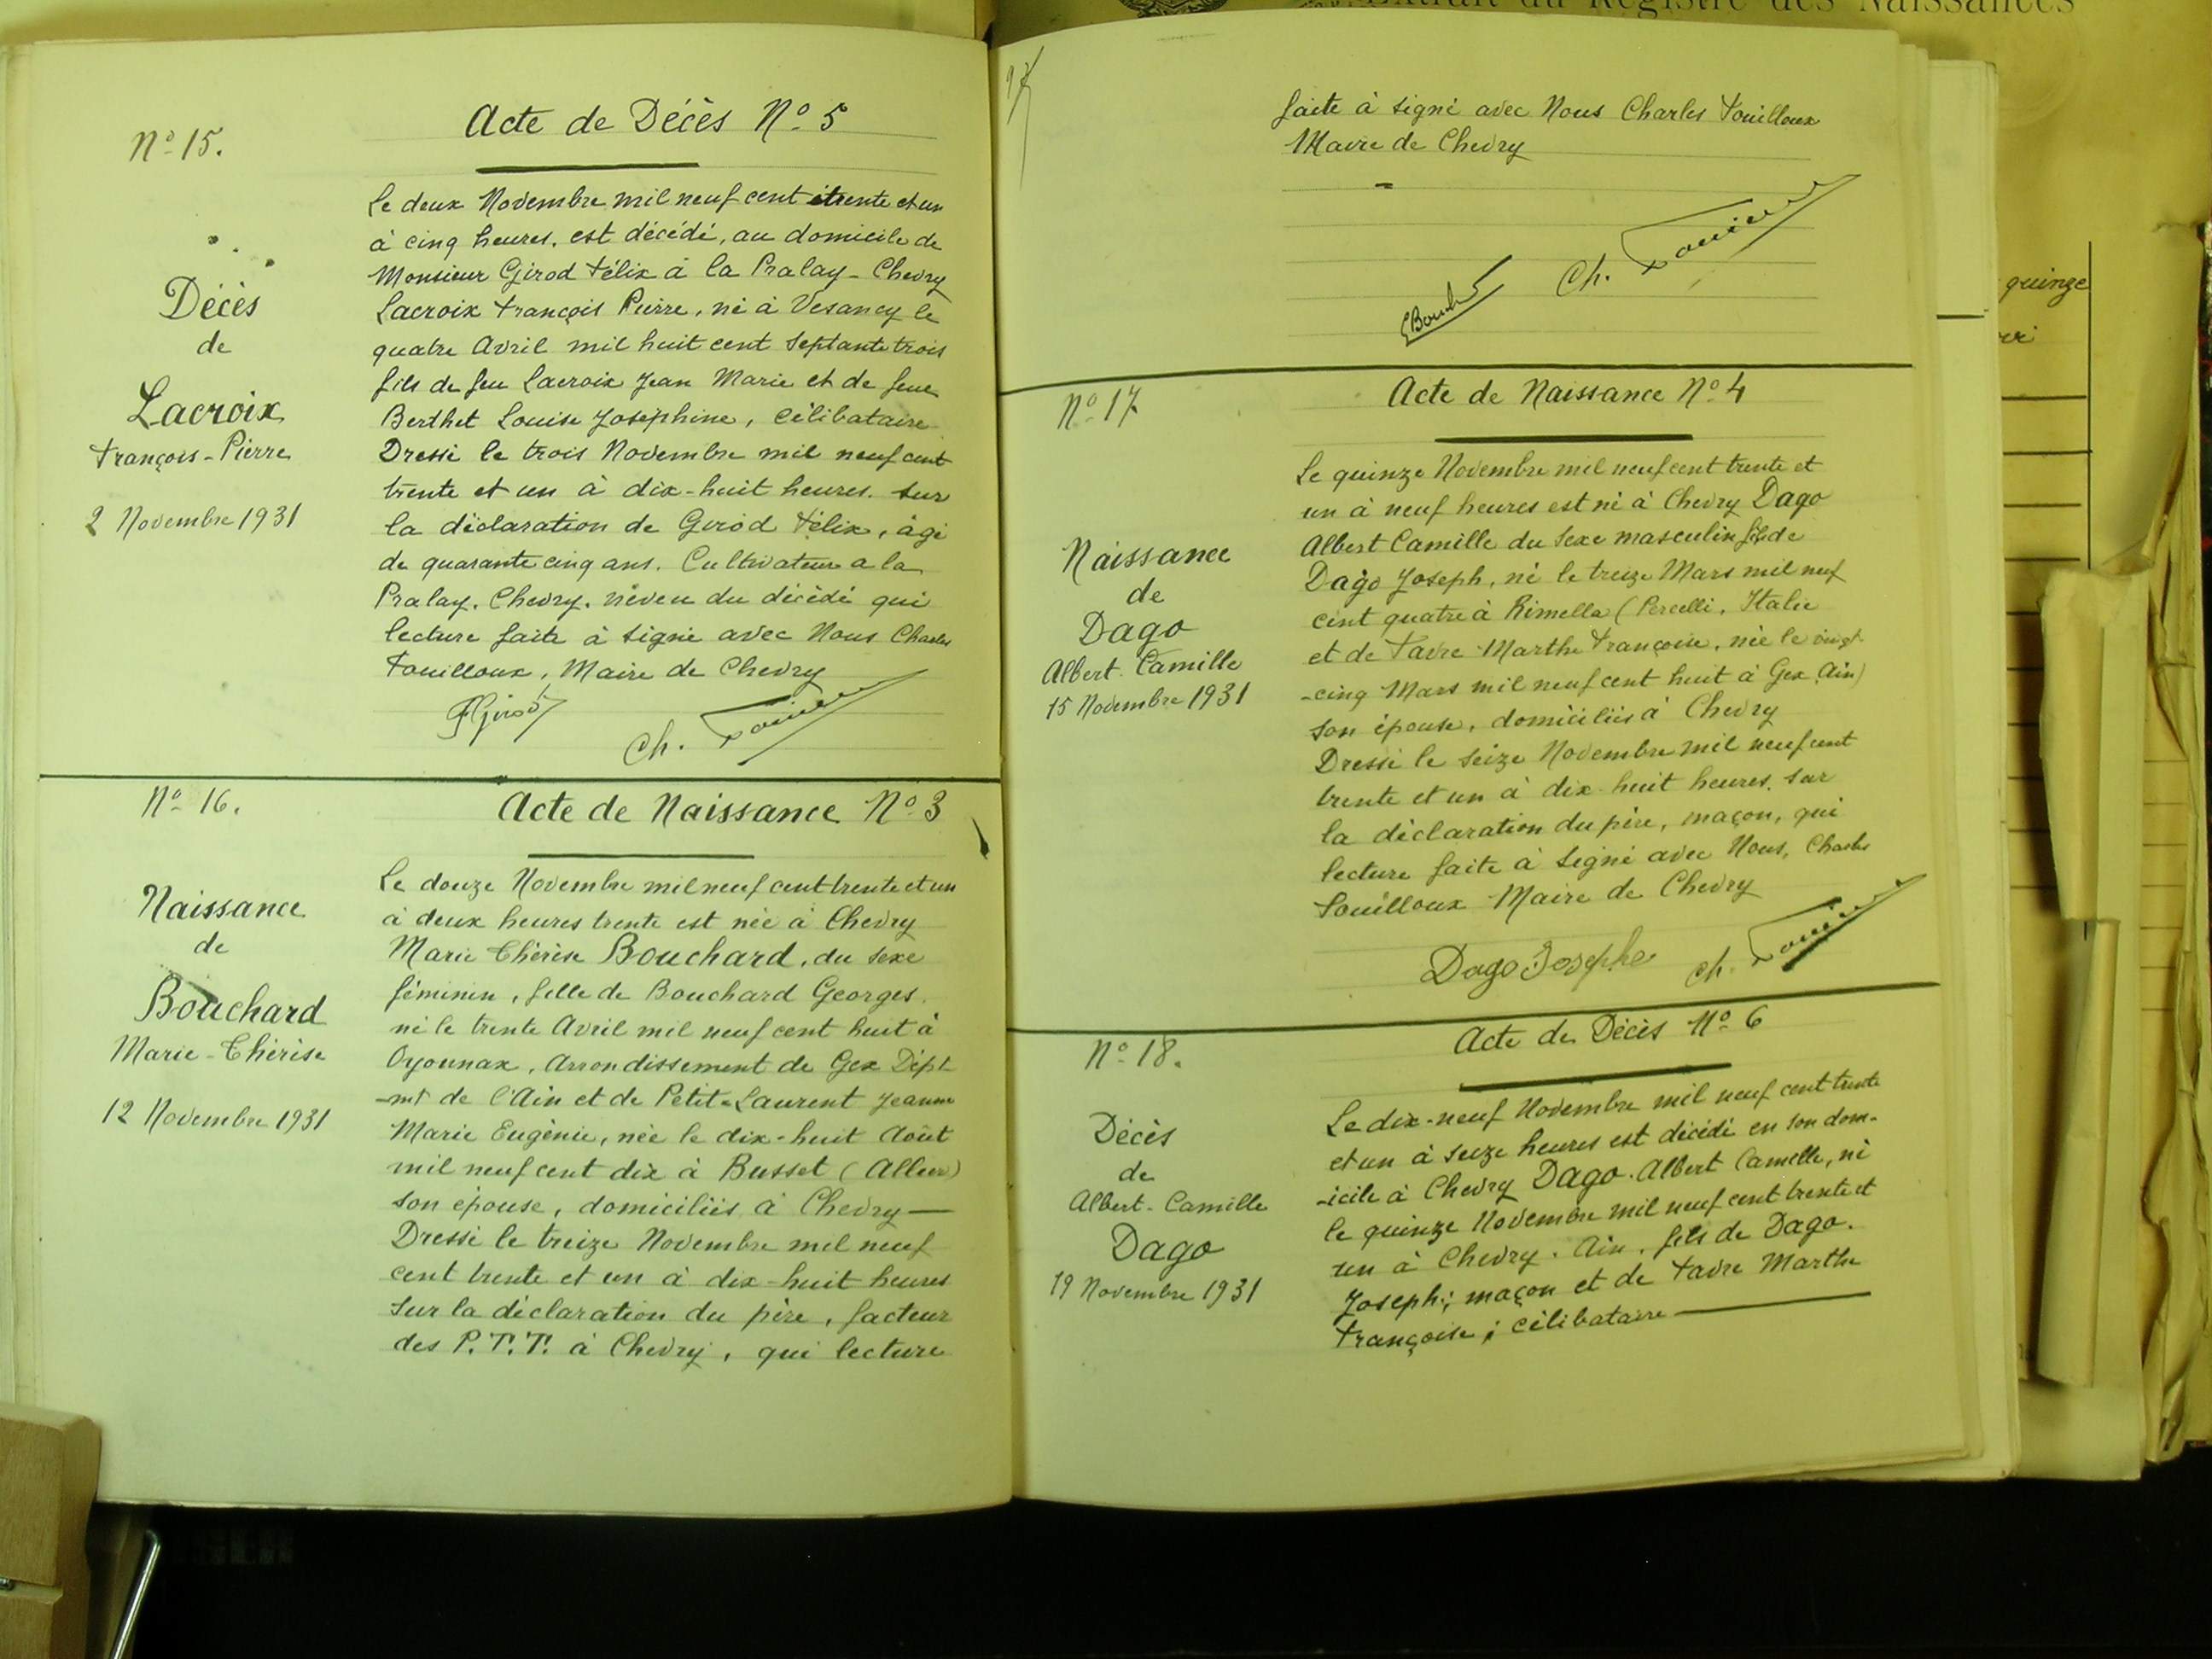 Extrait du Registre des Naissances
N° 15.
Acte de Décès N° 5
Décès
de
Lacroix
François-Pierre
2 Novembre 1931
Le deux Novembre mil neuf cent trente et un
à cinq heures. est décédé, au domicile de
Monsieur Girod Félix à la Pralay-Chevry
Lacroix François Pierre, né à Vesancy le
quatre Avril mil huit cent septante trois
fils de feu Lacroix Jean Marie et de feue
Berthet Louise Joséphine, célibataire
Dressé le trois Novembre mil neuf cent
trente et un à dix-huit heures. sur
la déclaration de Girod Félix, âgé
de quarante cinq ans. Cultivateur a la
Pralay. Chevry. néveu du décédé qui
lecture faite à signé avec Nous Charles
Fouilloux, Maire de Chevry
FGirod
Ch.
N° 16.
Acte de Naissance N° 3
Naissance
de
Bouchard
Marie-Thérèse
12 Novembre 1931
Le douze Novembre mil neuf cent trente et un
à deux heures trente est née à Chevry
Marie Thérèse Bouchard, du sexe
féminin, fille de Bouchard Georges.
né le trente Avril mil neuf cent huit à
Oyonnax, Arrondissement de Gex Dépt
-mt de l'Ain et de Petit-Laurent Jeanne
Marie Eugénie, née le dix-huit Août
mil neuf cent dix à Busset (Allier)
son épouse, domiciliés à Chevry
Dressé le treize Novembre mil neuf
cent trente et un à dix-huit heures
sur la déclaration du père, facteur
des P.T.T. à Chevry, qui lecture
faite à signé avec Nous Charles Fouilloux
Maire de Chevry
Ch.
N° 17.
Acte de Naissance N° 4
Naissance
de
Dago
Albert-Camille
15 Novembre 1931
Le quinze Novembre mil neuf cent trente et
un à neuf heures est né à Chevry Dago
Albert Camille du sexe masculin fils de
Dago Joseph, né le treize Mars mil neuf
cent quatre à Rimella (Percelli. Italie
et de Favre Marthe Françoise, née le vingt
-cinq Mars mil neuf cent huit à Gex Ain)
son épouse, domiciliés à Chevry
Dressé le seize Novembre mil neuf cent
trente et un à dix-huit heures. sur
la déclaration du père, maçon, qui
lecture faite à signé avec Nous, Charles
Fouilloux Maire de Chevry
Dago Josephe
Ch.
N° 18.
Acte de Décès N° 6
Décès
de
Albert-Camille
Dago
19 Novembre 1931
Le dix-neuf Novembre mil neuf cent trente
et un à seize heures est décédé en son dom-
-icile à Chevry Dago. Albert Camille, né
le quinze Novembre mil neuf cent trente et
un à Chevry. Ain. fils de Dago.
Joseph; maçon et de Favre Marthe
Françoise; célibataire
quinze